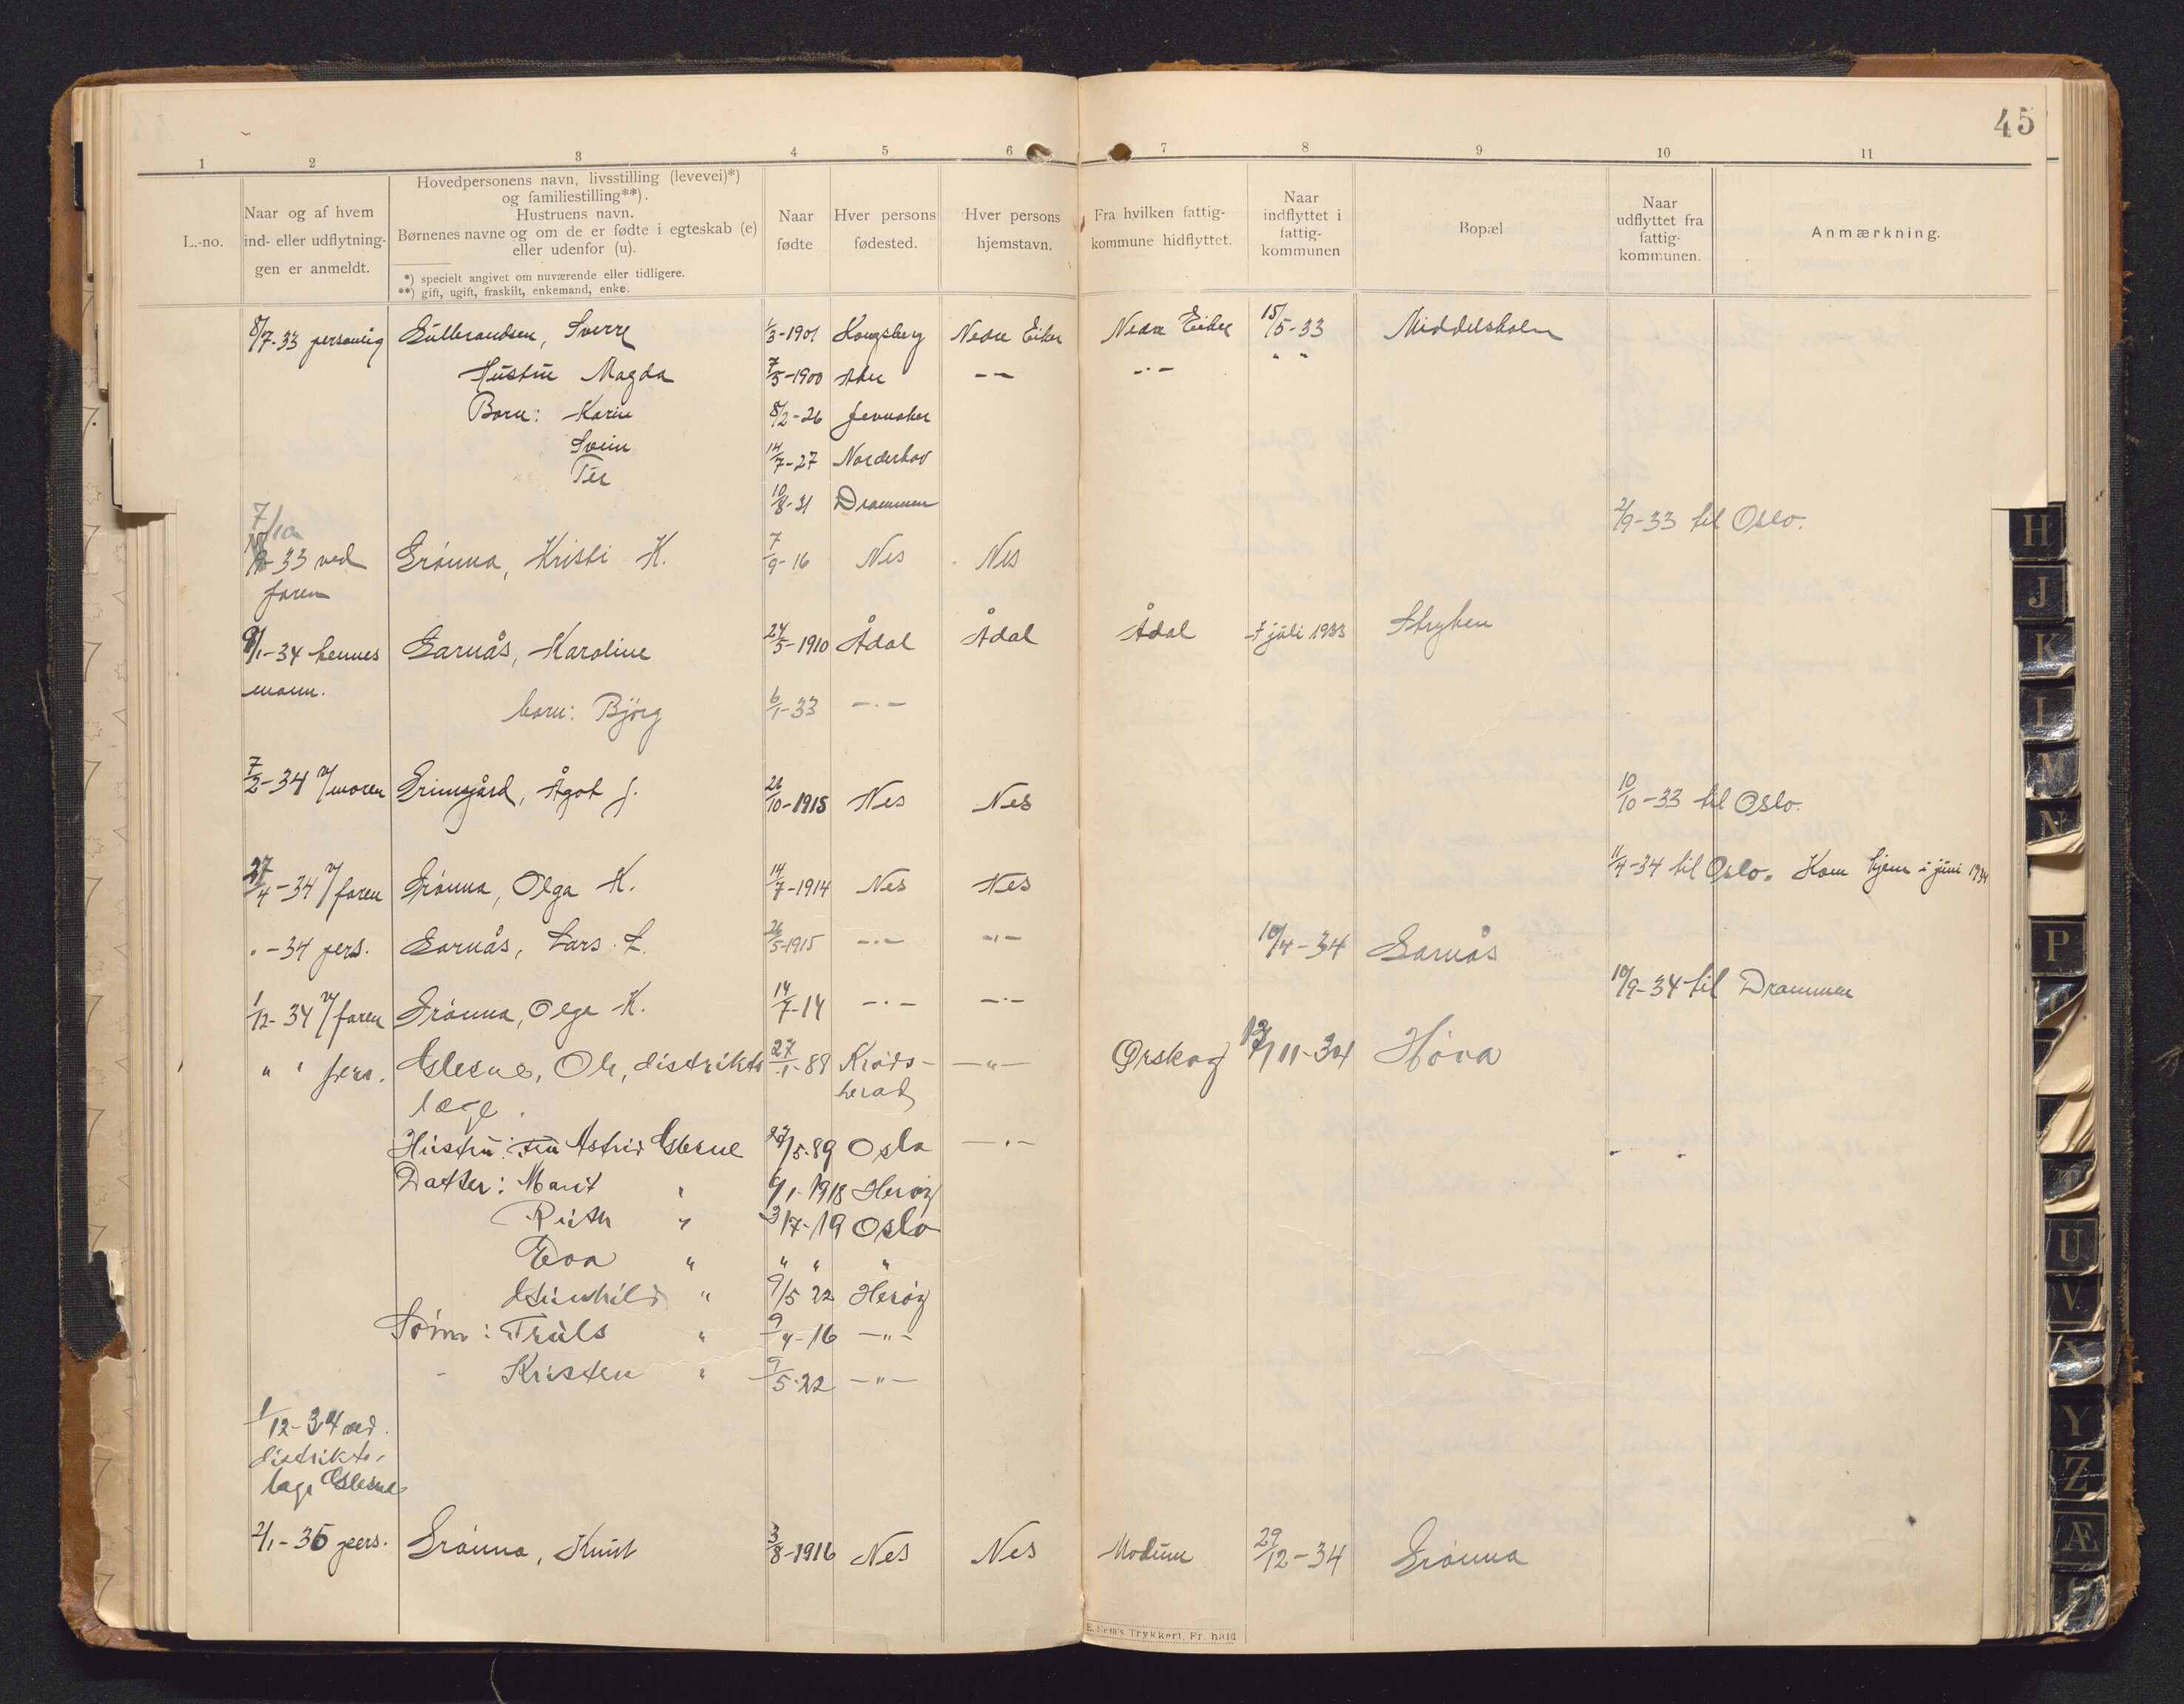 45
1 2 3 4 5 6 7 8 9 10 11
L.-no.
Naar og af hvem
ind- eller udflytnin-
gen er anmeldt.
Hovedpersonens navn, livsstilling (levevei)*)
og familiestilling**).
Hustruens navn.
Børnenes navne og om de er fødte i egteskab (e)
eller udenfor (u).
*) specielt angivet om nuværende eller tidligere.
**) gift, ugift, fraskilt, enkemand, enke.
Naar
fødte
Hver persons
fødested.
Hver persons
hjemstavn.
Fra hvilken fattig-
kommune hidflyttet.
Naar
indflyttet i
fattig-
kommunen
Bopæl
Naar
udflyttet fra
fattig-
kommunen.
Anmærkning.
8/7-33 personlig Gulbrandsen, Sverre 1/3-1901 Kongsberg Nedre Eiker Nedre Eiker 15/5-33 Middelskolen
Hustru Magda 7/5-1900 — — —·— " "
Born: Karin 8/2-26 Jevnaker
Svein 14/7-27 Norderhov
Per
10/8-31 Drammen
7/10
2/9-33 til Oslo.
-33 ved Grönna, Kristi K. 7/9-16 Nes Nes
faren
9/1-34 hennes Garnås, Karoline 24/5-1910 Ådal Ådal Ådal 7 juli 1933 Stryken
mann.
barn: Björg 6/1-33 —·—
7/2-34 v/moren Grimsgård, Ågot J. 26/10-1915 Nes Nes 10/10-33 til Oslo.
27/4-34 v/faren Grönna, Olga K. 14/7-1914 Nes Nes 11/4-34 til Oslo. Kom hjem i juni 1934
" -34 pers. Garnås, Lars L. 26/5-1915 —·— —"— 10/4-34 Garnås
1/12-34 v/faren Grönna, Olga K. 14/7-14 —·— —·— 10/9-34 til Drammen
" " pers. Glesne, Ole, distrikts 27/1-89 Kröds- —"— Ørskog /11-34 Höva
læge. herad
Hustru: Fru Astrid Glesne 27/5-89 Oslo —·—
Datter: Marit " 6/1-1918 Heröy
Ruth " 3/7-19 Oslo
Eva " " " "
Gunhild " 9/5 22 Heröy
Sönn: Truls " 9/4-16 —"—
- Kristen " 9/5-22 —"—
1/12-34 ved
distrikts-
læge Glesne
2/1-35 pers. Grönna, Knut 3/8-1916 Nes Nes Modum 29/12-34 Grönna
E. Sem's Trykkeri, Fr.hald
H
J
K
L
M
N
P
T
U
V
X
Y
Z
Æ